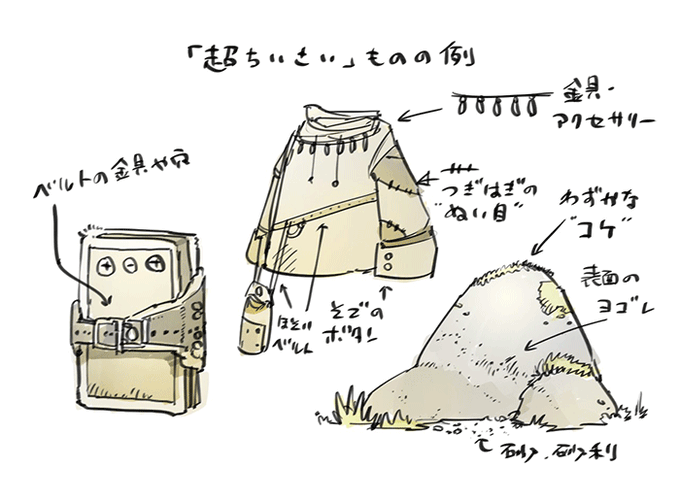 「超ちいさい」ものの例
金具・
アクセサリー
ベルトの金具や穴
つぎはぎの
"ぬい目"
わずかな
"コケ"
表面の
ヨゴレ
ほそい
ベルト
そでの
ボタン
砂、砂利